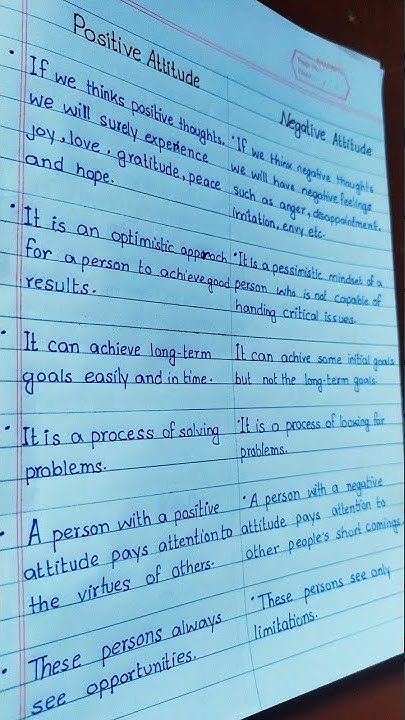 Positive Attitude
• If we thinks positive thoughts,
we will surely experience
joy, love, gratitude, peace
and hope.
• It is an optimistic approach
for a person to achieve good
results.
• It can achieve long-term
goals easily and in time.
• It is a process of solving
problems.
• A person with a positive
attitude pays attention to
the virtues of others.
• These persons always
see opportunities.
Negative Attitude
• If we think negative thoughts
we will have negative feelings
such as anger, disappointment,
irritation, envy etc.
• It is a pessimistic mindset of a
person who is not capable of
handing critical issues.
It can achive some initial goals
but not the long-term goals.
• It is a process of looking for
problems.
• A person with a negative
attitude pays attention to
other people's short comings.
• These persons see only
limitations.